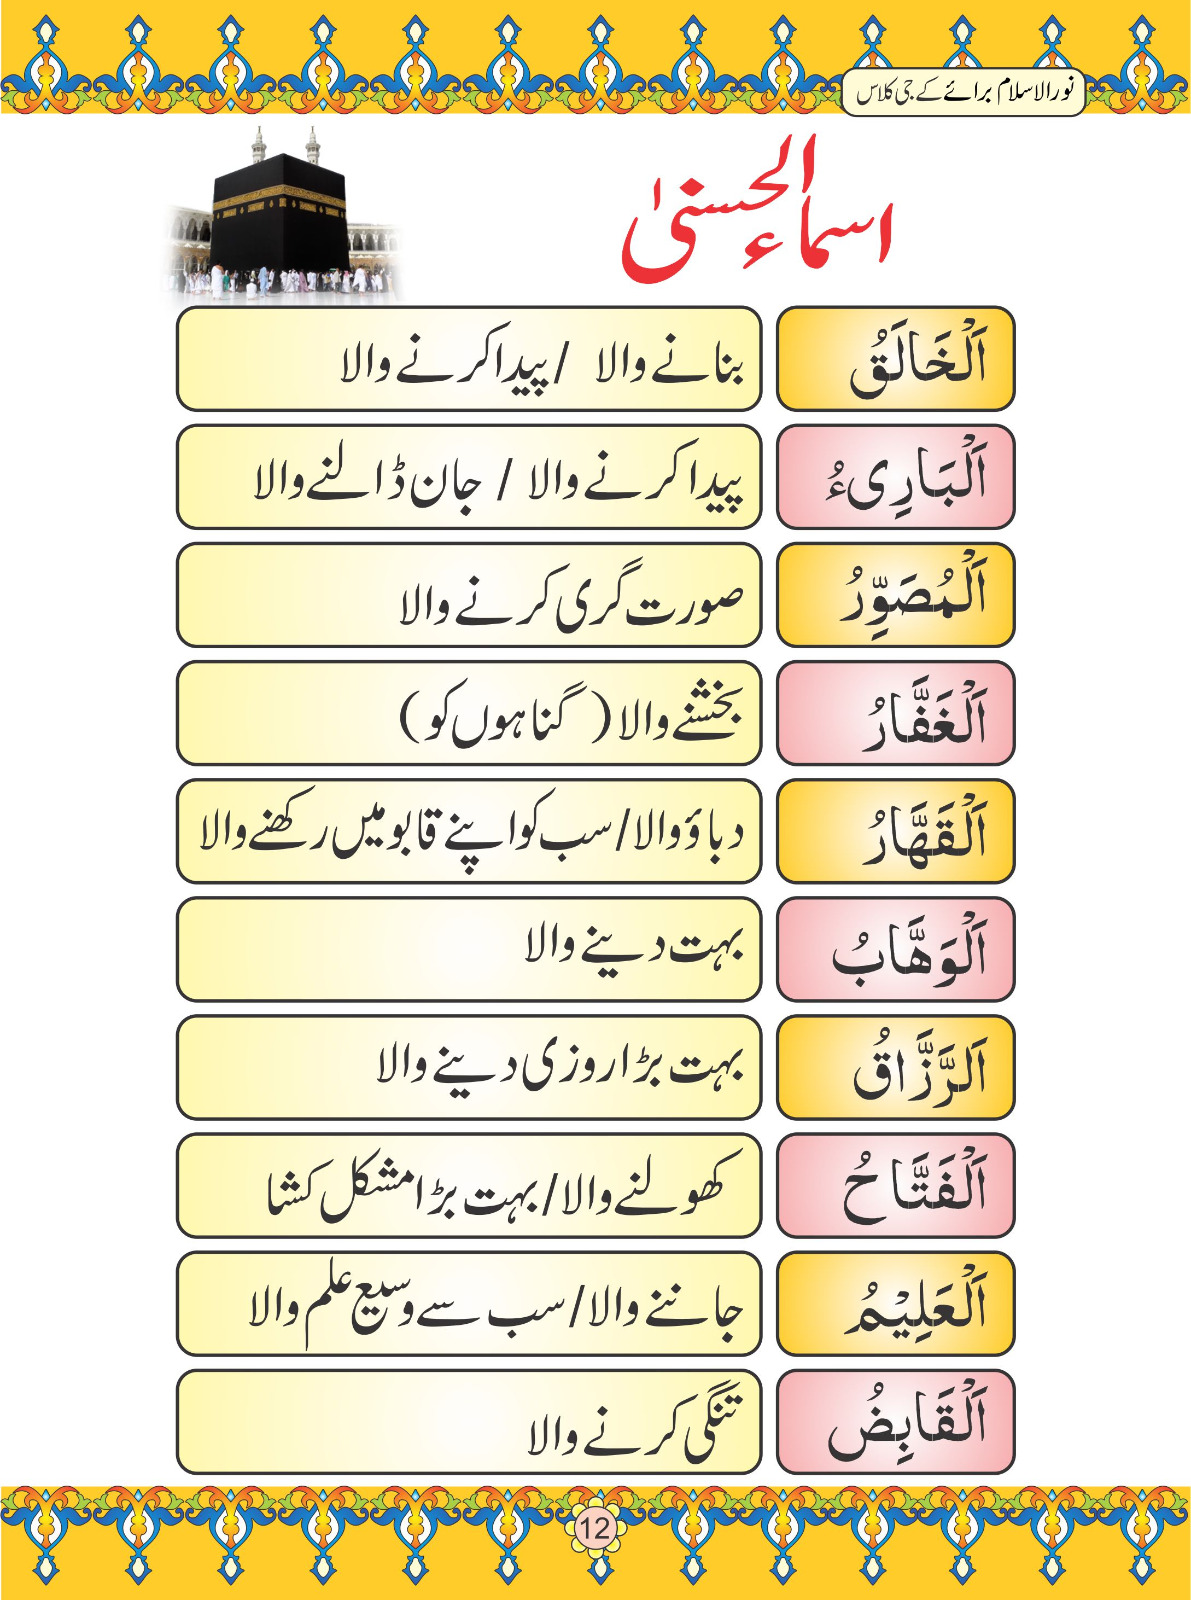 نورالاسلام برائے کے جی کلاس
اسماءالحسنیٰ
اَلْخَالَقُ بنانے والا / پیدا کرنے والا
اَلْبَارِیءُ پیدا کرنے والا / جان ڈالنے والا
اَلْمُصَوِّرُ صورت گری کرنے والا
اَلْغَفَّارُ بخشنے والا (گناہوں کو)
اَلْقَهَّارُ دباؤ والا/سب کو اپنے قابو میں رکھنے والا
اَلْوَهَّابُ بہت دینے والا
اَلرَّزَّاقُ بہت بڑا روزی دینے والا
اَلْفَتَّاحُ کھولنے والا/بہت بڑا مشکل کشا
اَلْعَلِیْمُ جاننے والا/سب سے وسیع علم والا
اَلْقَابِضُ تنگی کرنے والا
12